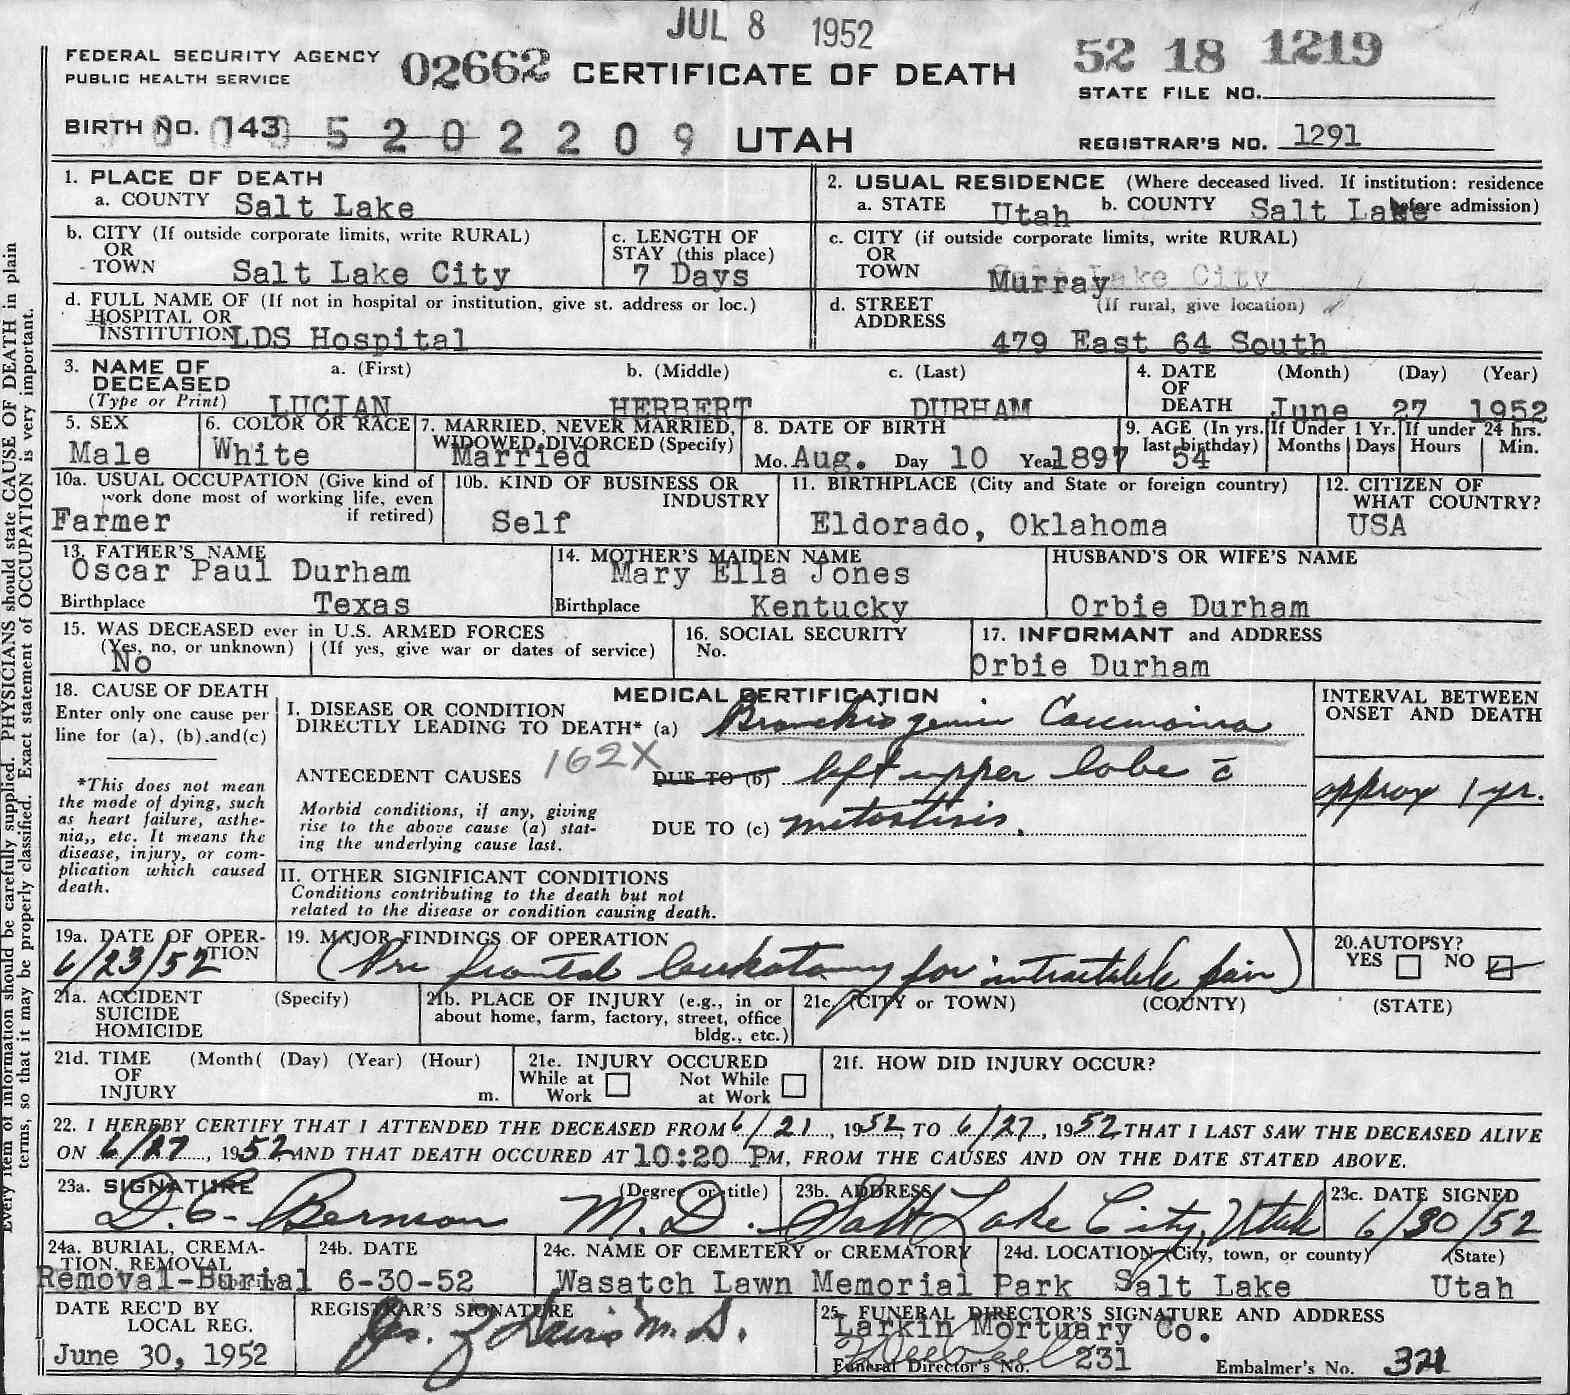 JUL 8 1952
FEDERAL SECURITY AGENCY
PUBLIC HEALTH SERVICE
02662 CERTIFICATE OF DEATH
52 18 1219
STATE FILE NO.
BIRTH NO. 143 5 2 0 2 2 0 9 UTAH
REGISTRAR'S NO. 1291
1. PLACE OF DEATH
a. COUNTY Salt Lake
2. USUAL RESIDENCE (Where deceased lived. If institution: residence before admission)
a. STATE Utah b. COUNTY Salt Lake
b. CITY (If outside corporate limits, write RURAL)
OR
TOWN Salt Lake City
c. LENGTH OF
STAY (this place)
7 Days
c. CITY (if outside corporate limits, write RURAL)
OR
TOWN Murray
d. FULL NAME OF (If not in hospital or institution, give st. address or loc.)
HOSPITAL OR
INSTITUTION LDS Hospital
d. STREET (If rural, give location)
ADDRESS
479 East 64 South
3. NAME OF
DECEASED
(Type or Print)
a. (First) b. (Middle) c. (Last)
LUCIAN HERBERT DURHAM
4. DATE (Month) (Day) (Year)
OF
DEATH June 27 1952
5. SEX
Male
6. COLOR OR RACE
White
7. MARRIED, NEVER MARRIED,
WIDOWED, DIVORCED (Specify)
Married
8. DATE OF BIRTH
Mo. Aug. Day 10 Year 1897
9. AGE (In yrs.
last birthday)
54
If Under 1 Yr.
Months Days
If under 24 hrs.
Hours Min.
10a. USUAL OCCUPATION (Give kind of
work done most of working life, even
if retired)
Farmer
10b. KIND OF BUSINESS OR
INDUSTRY
Self
11. BIRTHPLACE (City and State or foreign country)
Eldorado, Oklahoma
12. CITIZEN OF
WHAT COUNTRY?
USA
13. FATHER'S NAME
Oscar Paul Durham
Birthplace Texas
14. MOTHER'S MAIDEN NAME
Mary Ella Jones
Birthplace Kentucky
HUSBAND'S OR WIFE'S NAME
Orbie Durham
15. WAS DECEASED ever in U.S. ARMED FORCES
(Yes, no, or unknown) (If yes, give war or dates of service)
No
16. SOCIAL SECURITY
No.
17. INFORMANT and ADDRESS
Orbie Durham
18. CAUSE OF DEATH
Enter only one cause per
line for (a), (b), and (c)
*This does not mean
the mode of dying, such
as heart failure, asthe-
nia,, etc. It means the
disease, injury, or com-
plication which caused
death.
MEDICAL CERTIFICATION
I. DISEASE OR CONDITION
DIRECTLY LEADING TO DEATH* (a) Bronchiogenic Carcinoma
162X
ANTECEDENT CAUSES DUE TO (b) left upper lobe c̄
Morbid conditions, if any, giving
rise to the above cause (a) stat-
ing the underlying cause last.
DUE TO (c) metastisis.
INTERVAL BETWEEN
ONSET AND DEATH
approx 1 yr.
II. OTHER SIGNIFICANT CONDITIONS
Conditions contributing to the death but not
related to the disease or condition causing death.
19a. DATE OF OPER-
ATION
6/23/52
19. MAJOR FINDINGS OF OPERATION
(Pre frontal leukotomy for intractable pain)
20. AUTOPSY?
YES NO
21a. ACCIDENT (Specify)
SUICIDE
HOMICIDE
21b. PLACE OF INJURY (e.g., in or
about home, farm, factory, street, office
bldg., etc.)
21c. (CITY or TOWN) (COUNTY) (STATE)
21d. TIME (Month( (Day) (Year) (Hour)
OF
INJURY m.
21e. INJURY OCCURED
While at Work Not While at Work
21f. HOW DID INJURY OCCUR?
22. I HEREBY CERTIFY THAT I ATTENDED THE DECEASED FROM 6/21, 1952, TO 6/27, 1952 THAT I LAST SAW THE DECEASED ALIVE
ON 6/27, 1952, AND THAT DEATH OCCURED AT 10:20 PM, FROM THE CAUSES AND ON THE DATE STATED ABOVE.
23a. SIGNATURE (Degree or title)
D.C. Bernson M.D.
23b. ADDRESS
Salt Lake City, Utah
23c. DATE SIGNED
6/30/52
24a. BURIAL, CREMA-
TION, REMOVAL
Removal-Burial
24b. DATE
6-30-52
24c. NAME OF CEMETERY or CREMATORY
Wasatch Lawn Memorial Park
24d. LOCATION (City, town, or county) (State)
Salt Lake Utah
DATE REC'D BY
LOCAL REG.
June 30, 1952
REGISTRAR'S SIGNATURE
M.D.
25. FUNERAL DIRECTOR'S SIGNATURE AND ADDRESS
Larkin Mortuary Co.
Funeral Director's No. 231 Embalmer's No. 321
Every item of information should be carefully supplied. PHYSICIANS should state CAUSE OF DEATH in plain
terms, so that it may be properly classified. Exact statement of OCCUPATION is very important.